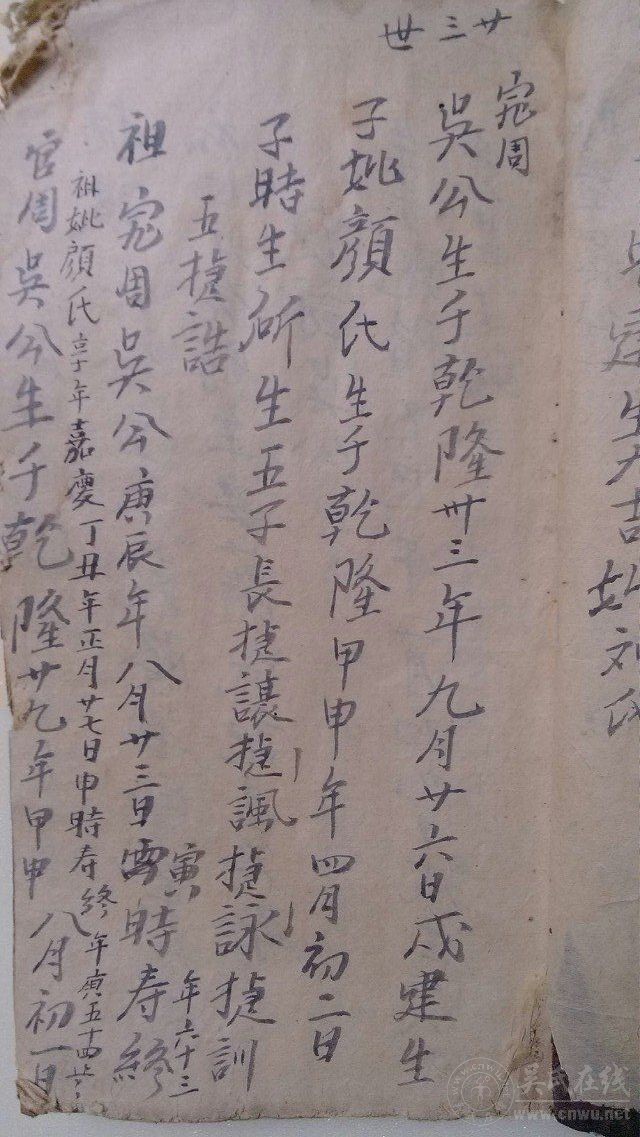 廿三世
宛周
吳公生于乾隆卅三年九月廿六日戍建生
子妣顏氏生于乾隆甲申年四月初二日
子時生所生五子長捷讓捷諷捷詠捷訓
五捷誥
祖宛周吳公庚辰年八月廿三日寅時寿終
年六十三
祖妣顏氏享年嘉慶丁丑年正月廿七日申時寿終年庚五十四
官周吳公生于乾隆廿九年甲申八月初一日
吉妣刘氏
吴氏在线
www.cnwu.net